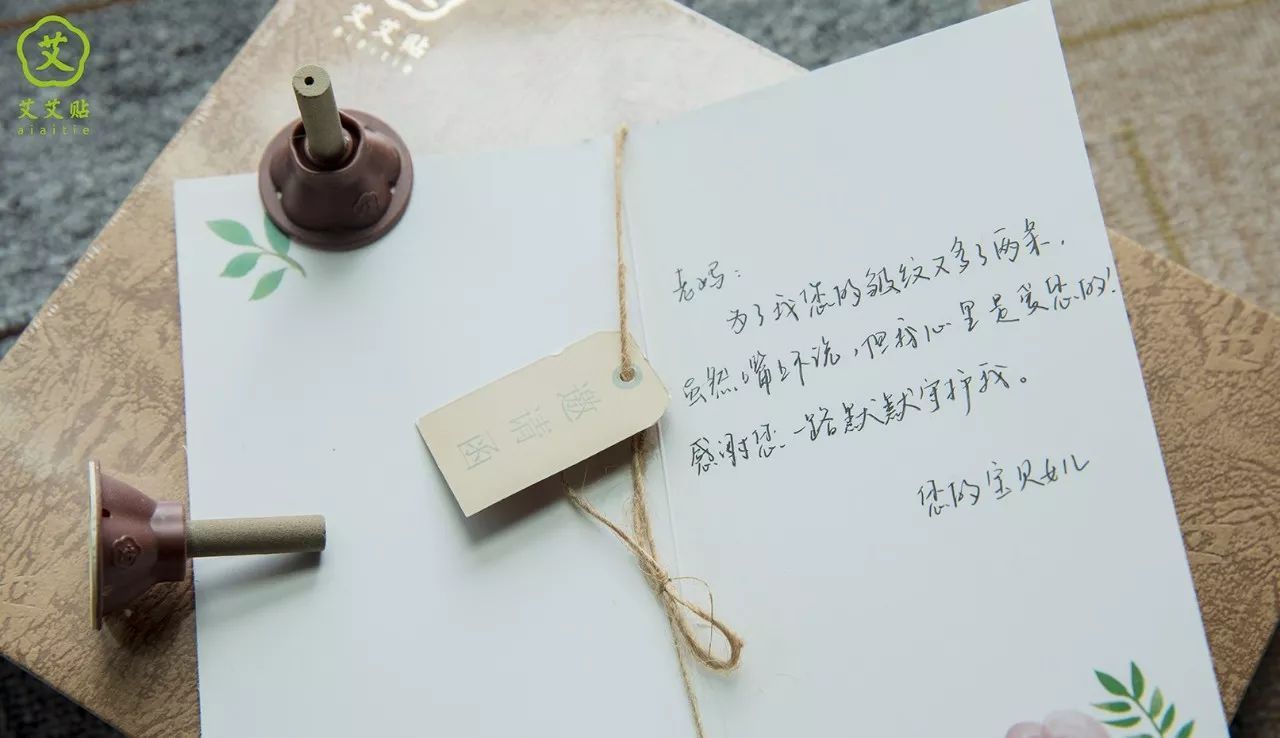 艾
艾艾贴
aiaitie
艾艾贴
aiaitie
老妈：
为了我您的皱纹又多了两条，
虽然嘴上不说，但我心里是爱您的！
感谢您一路默默守护我。
您的宝贝女儿
邀请函